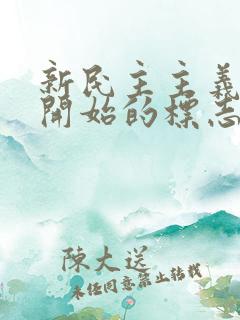 新民主主義
開始的標志
陳大送
未任同意禁止轉載